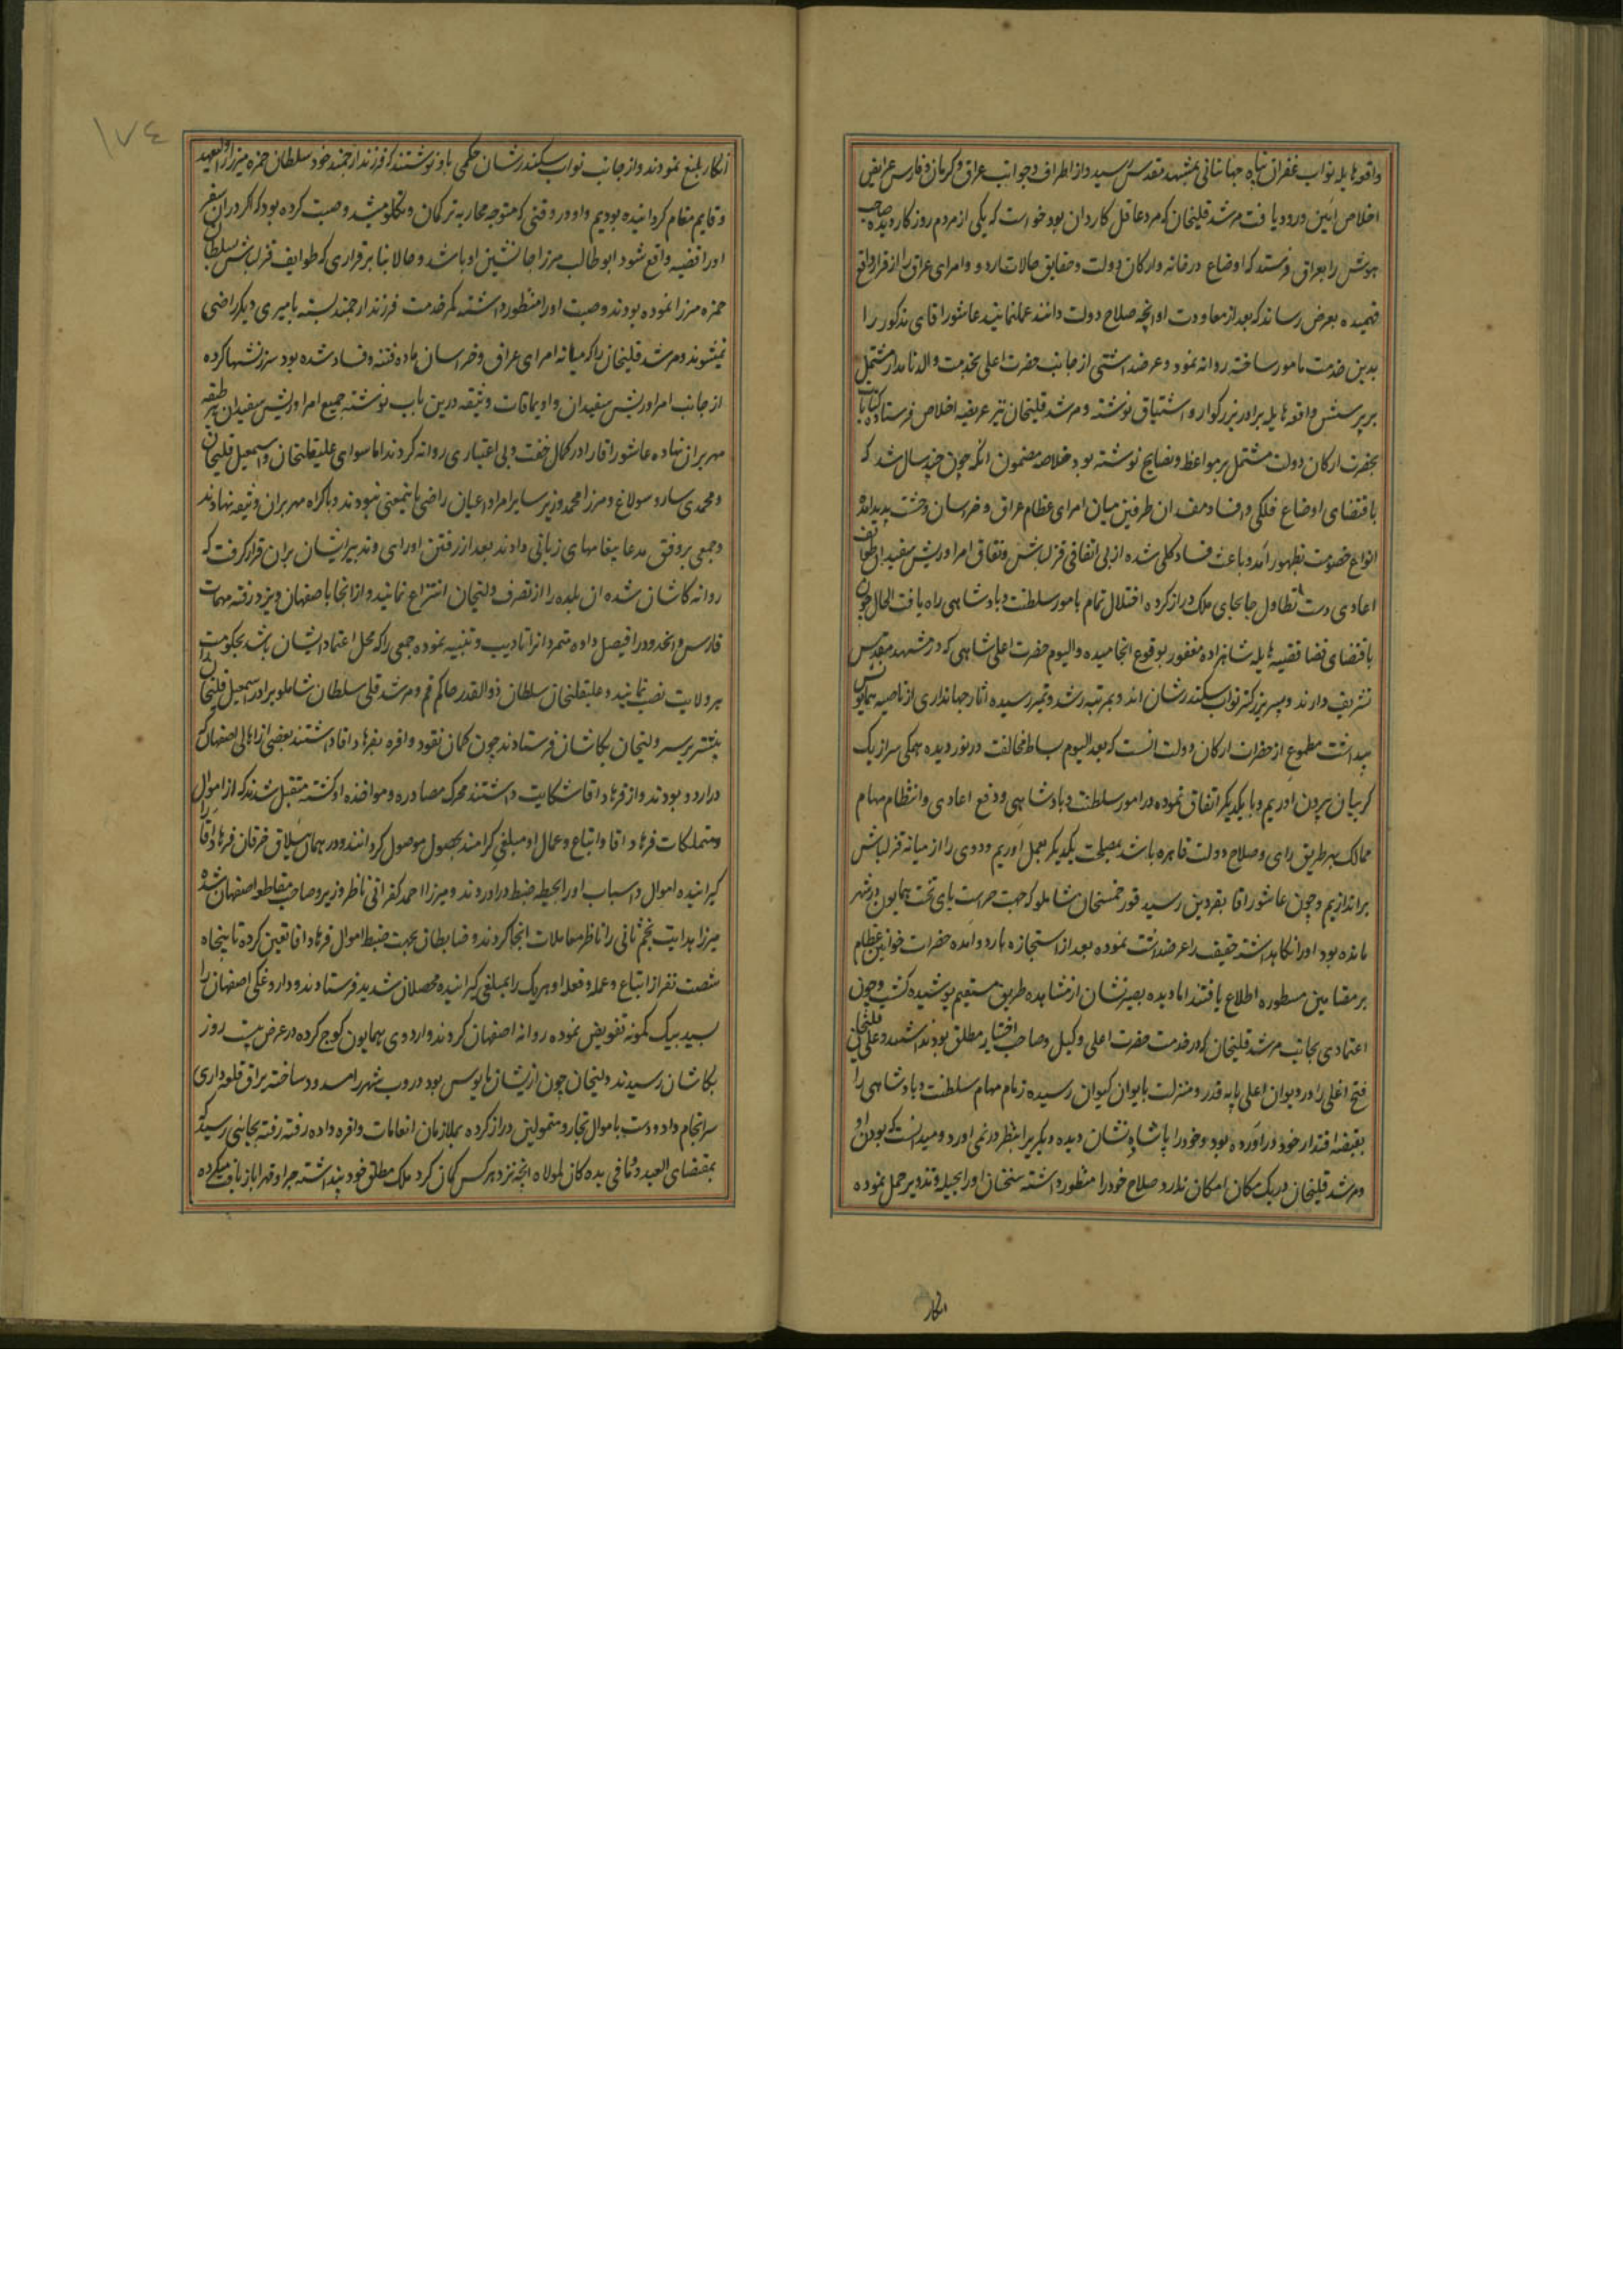 واقعه هایله نواب غفران پناه جهانبانی بمشهد مقدس رسید و از اطراف و جوانب عراق و کرمان و فارس عرایض
اخلاص آئین ورود یافت مرشد قلیخان که مرد عاقل کاردان بود خواست که یکی از مردم روزگار دیده صاحب
هوش را بعراق فرستد که اوضاع درخانه و ارکان دولت و حقایق حالات اردو و امرای عراق را از قرار واقع
فهمیده بعرض رساند که بعد از معاودت او انچه صلاح دولت دانند عمل نمایند عاشور اقای مذکور را
بدین خدمت مامور ساخته روانه نمود و عرضه داشتی از جانب حضرت اعلی بخدمت والد نامدار مشتمل
بر پرسش واقعه هایله برادر بزرگوار و اشتیاق نوشته و مرشد قلیخان نیز عریضه اخلاص فرستاده کتابات
بحضرت ارکان دولت مشتمل بر مواعظ و نصایح نوشته بود خلاصه مضمون آنکه چون چند سال شد که
باقتضای اوضاع فلکی و افساد مفسدان طرفین میان امرای عظام عراق و خراسان وحشت پدید امده
انواع خصومت بظهور آمد و باعث فساد کلی شده از بی اتفاقی قزلباش و نفاق امرا و ریش سفیدان طوایف
اعادی دست تطاول جابجای ملک دراز کرده اختلال تمام بامور سلطنت و پادشاهی راه یافت الحال چون
باقتضای قضا قضیه هایله شاهزاده مغفور بوقوع انجامیده و الیوم حضرت اعلی شاهی که در مشهد مقدس
تشریف دارند و پسر بزرگتر نواب سکندر شان اند و بمرتبه رشد و تمیز رسیده اثار جهانداری از ناصیه همایونش
پیداست مطموع از حضرات ارکان دولت انست که بعد الیوم بساط مخالفت در نوردیده همگی سر از یک
گریبان بیرون اوریم و با یکدیگر اتفاق نموده در امور سلطنت و پادشاهی و دفع اعادی و انتظام مهام
ممالک بهر طریق رای و صلاح دولت قاهره باشد بمصلحت یکدیگر بعمل اوریم و دوی را از میانه قزلباش
براندازیم و چون عاشور اقا بقزوین رسید قور خمسخان شاملو که جهت حراست پای تخت همایون در شهر
مانده بود او را نگاهداشته حقیقت را عرضه داشت نموده بعد از استجازه باردو امده حضرات خوانین عظام
بر مضامین مسطوره اطلاع یافتند اما دیده بصیرتشان از مشاهده طریق مستقیم پوشیده گشت و چون
اعتمادی بجانب مرشد قلیخان که در خدمت حضرت اعلی وکیل و صاحب اختیار مطلق بود نداشتند و علی قلیخان
فتح اغلی را در دیوان اعلی پایه قدر و منزلت بایوان کیوان رسیده زمام مهام سلطنت و پادشاهی را
بقبضه اقتدار خود دراورده بود و خود را پادشاه نشان دیده دیگریرا بنظر در نمی اورد و میدانست که بودن او
و مرشد قلیخان در یک مکان امکان ندارد صلاح خود را منظور داشته سخنان او را بحیله و تزویر حمل نموده
انکار
۱۷٤
انکار بلیغ نمودند و از جانب نواب سکندر شان حکمی باو نوشتند که فرزند ارجمند خود سلطان حمزه میرزا را ولیعهد
و قایم مقام گردانیده بودیم و او در وقتی که متوجه محاربه ترکمان و تکلو میشد وصیت کرده بود که اگر در ان سفر
او را قضیه واقع شود ابو طالب میرزا جانشین او باشد و حالا بنابر قراری که طوایف قزلباش بسلطان
حمزه میرزا نموده بودند وصیت او را منظور داشته کمر خدمت فرزند ارجمند بسته بامیری دیگر راضی
نمیشوند و مرشد قلیخان را که میانه امرای عراق و خراسان ماده فتنه و فساد شده بود سرزنشها کرده
از جانب امرا و ریش سفیدان و اویماقات وثیقه درین باب نوشته جمیع امرا و ریش سفیدان هر طبقه
مهر بر ان نهاده عاشور اقا را در کمال خفت و بی اعتباری روانه کردند اما سوای علیقلیخان و اسمعیل قلیخان
و محمدی سارو سولاغ و میرزا محمد وزیر سایر امرا و اعیان راضی باینمعنی نبودند و باکراه مهر بر ان وثیقه نهادند
و جمعی بر وفق مدعا پیغامهای زبانی دادند بعد از رفتن او رای و تدبیر ایشان بران قرار گرفت که
روانه کاشان شده ان بلده را از تصرف ولیخان انتزاع نمایند و از انجا باصفهان و یزد رفته مهمات
فارس و انحدود را فیصل داده متمردانرا تادیب و تنبیه نموده جمعی را که محل اعتماد ایشان باشد بحکومت
هر ولایت نصب نمایند و علیقلیخان سلطان ذوالقدر حاکم قم و مرشد قلی سلطان شاملو برادر اسمعیل قلیخان را
پیشتر بر سر ولیخان بکاشان فرستادند چون گمان نقود وافره بفرهاد اقا داشتند بعضی از اهالی اصفهان که
در اردو بودند و از فرهاد اقا شکایت داشتند محرک مصادره و مواخذه او گشته متقبل شدند که از اموال
و متملکات فرهاد اقا و اتباع و عمال او مبلغی گرامند بحصول موصول گردانند و در همان ییلاق خرقان فرهاد اقا را
گیرانیده اموال و اسباب او را بحیطه ضبط دراوردند و میرزا احمد کفرانی ناظر و وزیر و صاحب مقاطعه اصفهان شده
میرزا هدایت نجم ثانی را ناظر معاملات انجا کردند و ضابطان بجهت ضبط اموال فرهاد اقا تعین کرده تا پنجاه
شصت نفر از اتباع و عمله و فعله او هر یک را بمبلغی گیرانیده محصلان شدید فرستادند و داروغگی اصفهان را
سید بیک کمونه تفویض نموده روانه اصفهان کردند و اردوی همایون کوچ کرده در عرض بیست روز
بکاشان رسیدند ولیخان چون از یشان مایوس بود دروب شهر را مسدود ساخته یراق قلعه داری
سرانجام داد و دست باموال تجار و متمولین دراز کرده بملازمان انعامات وافره داده رفته رفته بجائی رسید که
بمقتضای العبد و ما فی یده کان لمولاه انچه نزد هر کس گمان کرد ملک مطلق خود پنداشته جبرا و قهرا بازیافت میکرده